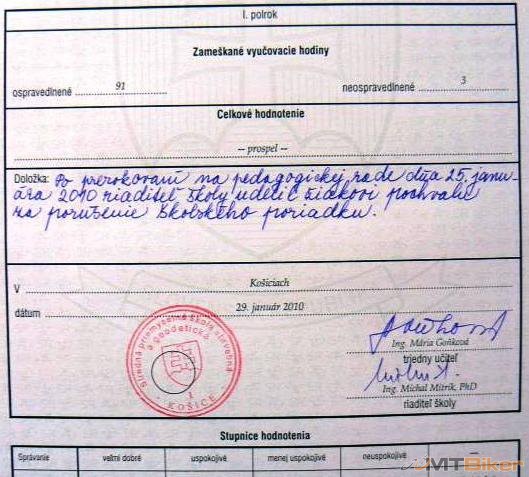 I. polrok
Zameškané vyučovacie hodiny
ospravedlnené 91 neospravedlnené 3
Celkové hodnotenie
-- prospel --
Doložka: Po prerokovaní na pedagogickej rade dňa 25. janu-
ára 2010 riaditeľ školy udelil žiakovi pochvalu
za porušenie školského poriadku.
V Košiciach
dátum 29. január 2010
Stredná priemyselná škola stavebná
a geodetická
1
- KOŠICE -
Ing. Mária Goňková
triedny učiteľ
Ing. Michal Mitrík, PhD
riaditeľ školy
Stupnice hodnotenia
Správanie veľmi dobré uspokojivé menej uspokojivé neuspokojivé –
MTBiker